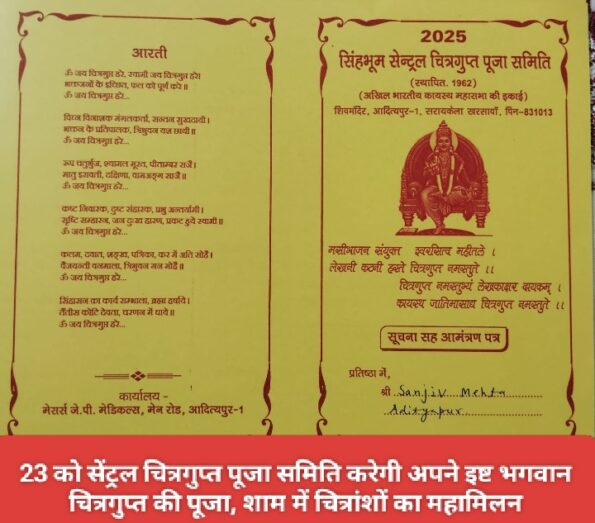 आरती
ॐ जय चित्रगुप्त हरे, स्वामी जय चित्रगुप्त हरे।
भक्तजनों के इच्छित, फल को पूर्ण करे॥
ॐ जय चित्रगुप्त हरे...
विघ्न विनाशक मंगलकर्ता, सन्तन सुखदायी।
भक्तन के प्रतिपालक, त्रिभुवन यश छायी॥
ॐ जय चित्रगुप्त हरे...
रूप चतुर्भुज, श्यामल मूरत, पीताम्बर राजै।
मातु इरावती, दक्षिणा, वामअङ्ग साजै॥
ॐ जय चित्रगुप्त हरे...
कष्ट निवारक, दुष्ट संहारक, प्रभु अन्तर्यामी।
सृष्टि सम्हारन, जन दुःख हारण, प्रकट हुये स्वामी॥
ॐ जय चित्रगुप्त हरे...
कलम, दवात, शङ्ख, पत्रिका, कर में अति सोहै।
वैजयन्ती वनमाला, त्रिभुवन मन मोहै॥
ॐ जय चित्रगुप्त हरे...
सिंहासन का कार्य सम्भाला, ब्रह्मा हर्षाये।
तैंतीस कोटि देवता, चरणन में धाये॥
ॐ जय चित्रगुप्त हरे...
कार्यालय -
मेसर्स जे.पी. मेडिकल्स, मेन रोड, आदित्यपुर-1
2025
सिंहभूम सेन्ट्रल चित्रगुप्त पूजा समिति
(स्थापित. 1962)
(अखिल भारतीय कायस्थ महासभा की इकाई)
शिवमंदिर, आदित्यपुर-1, सरायकेला खरसावाँ, पिन-831013
मसीभाजन संयुक्त महीतले ।
लेखनी कठनी हस्ते चित्रगुप्त नमस्तुते ।।
चित्रगुप्त नमस्तुभ्यं लेखकाक्षर दायकम् ।
कायस्थ जातिमासाद्य चित्रगुप्त नमस्तुते ।।
सूचना सह आमंत्रण पत्र
प्रतिष्ठा में,
श्री Sanjiv Mehta
Adityapur
23 को सेंट्रल चित्रगुप्त पूजा समिति करेगी अपने इष्ट भगवान
चित्रगुप्त की पूजा, शाम में चित्रांशों का महामिलन